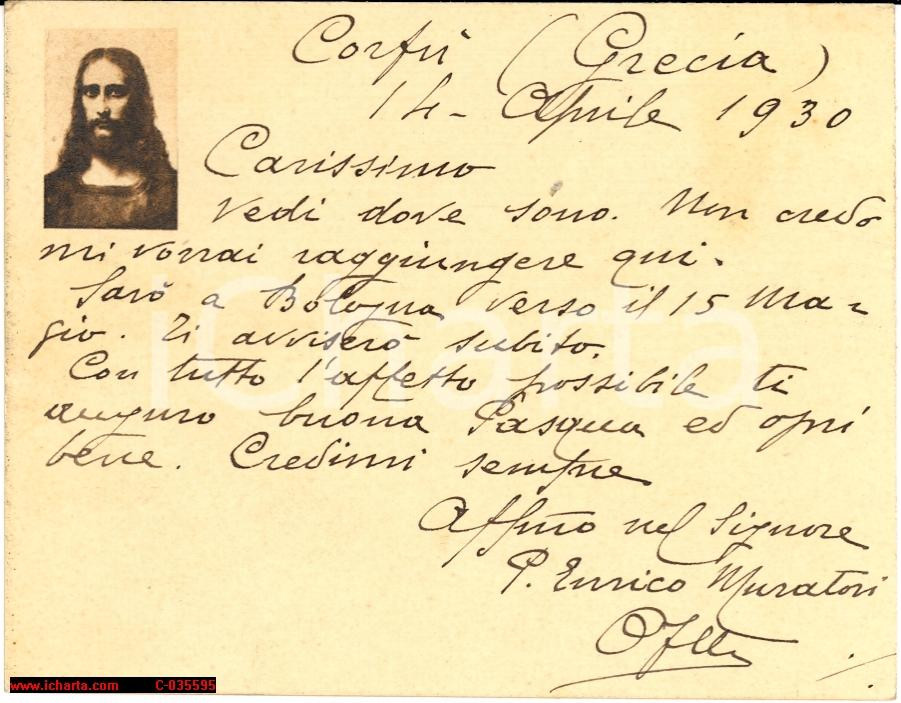 Corfù (Grecia)
14 - Aprile 1930
Carissimo
Vedi dove sono. Non credo
mi vorrai raggiungere qui.
Sarò a Bologna verso il 15 Ma-
gio. Ti avviserò subito.
Con tutto l'affetto possibile ti
auguro buona Pasqua ed ogni
bene. Credimi sempre
Affmo nel Signore
P. Enrico Muratori
iCharta
www.icharta.com C-035595